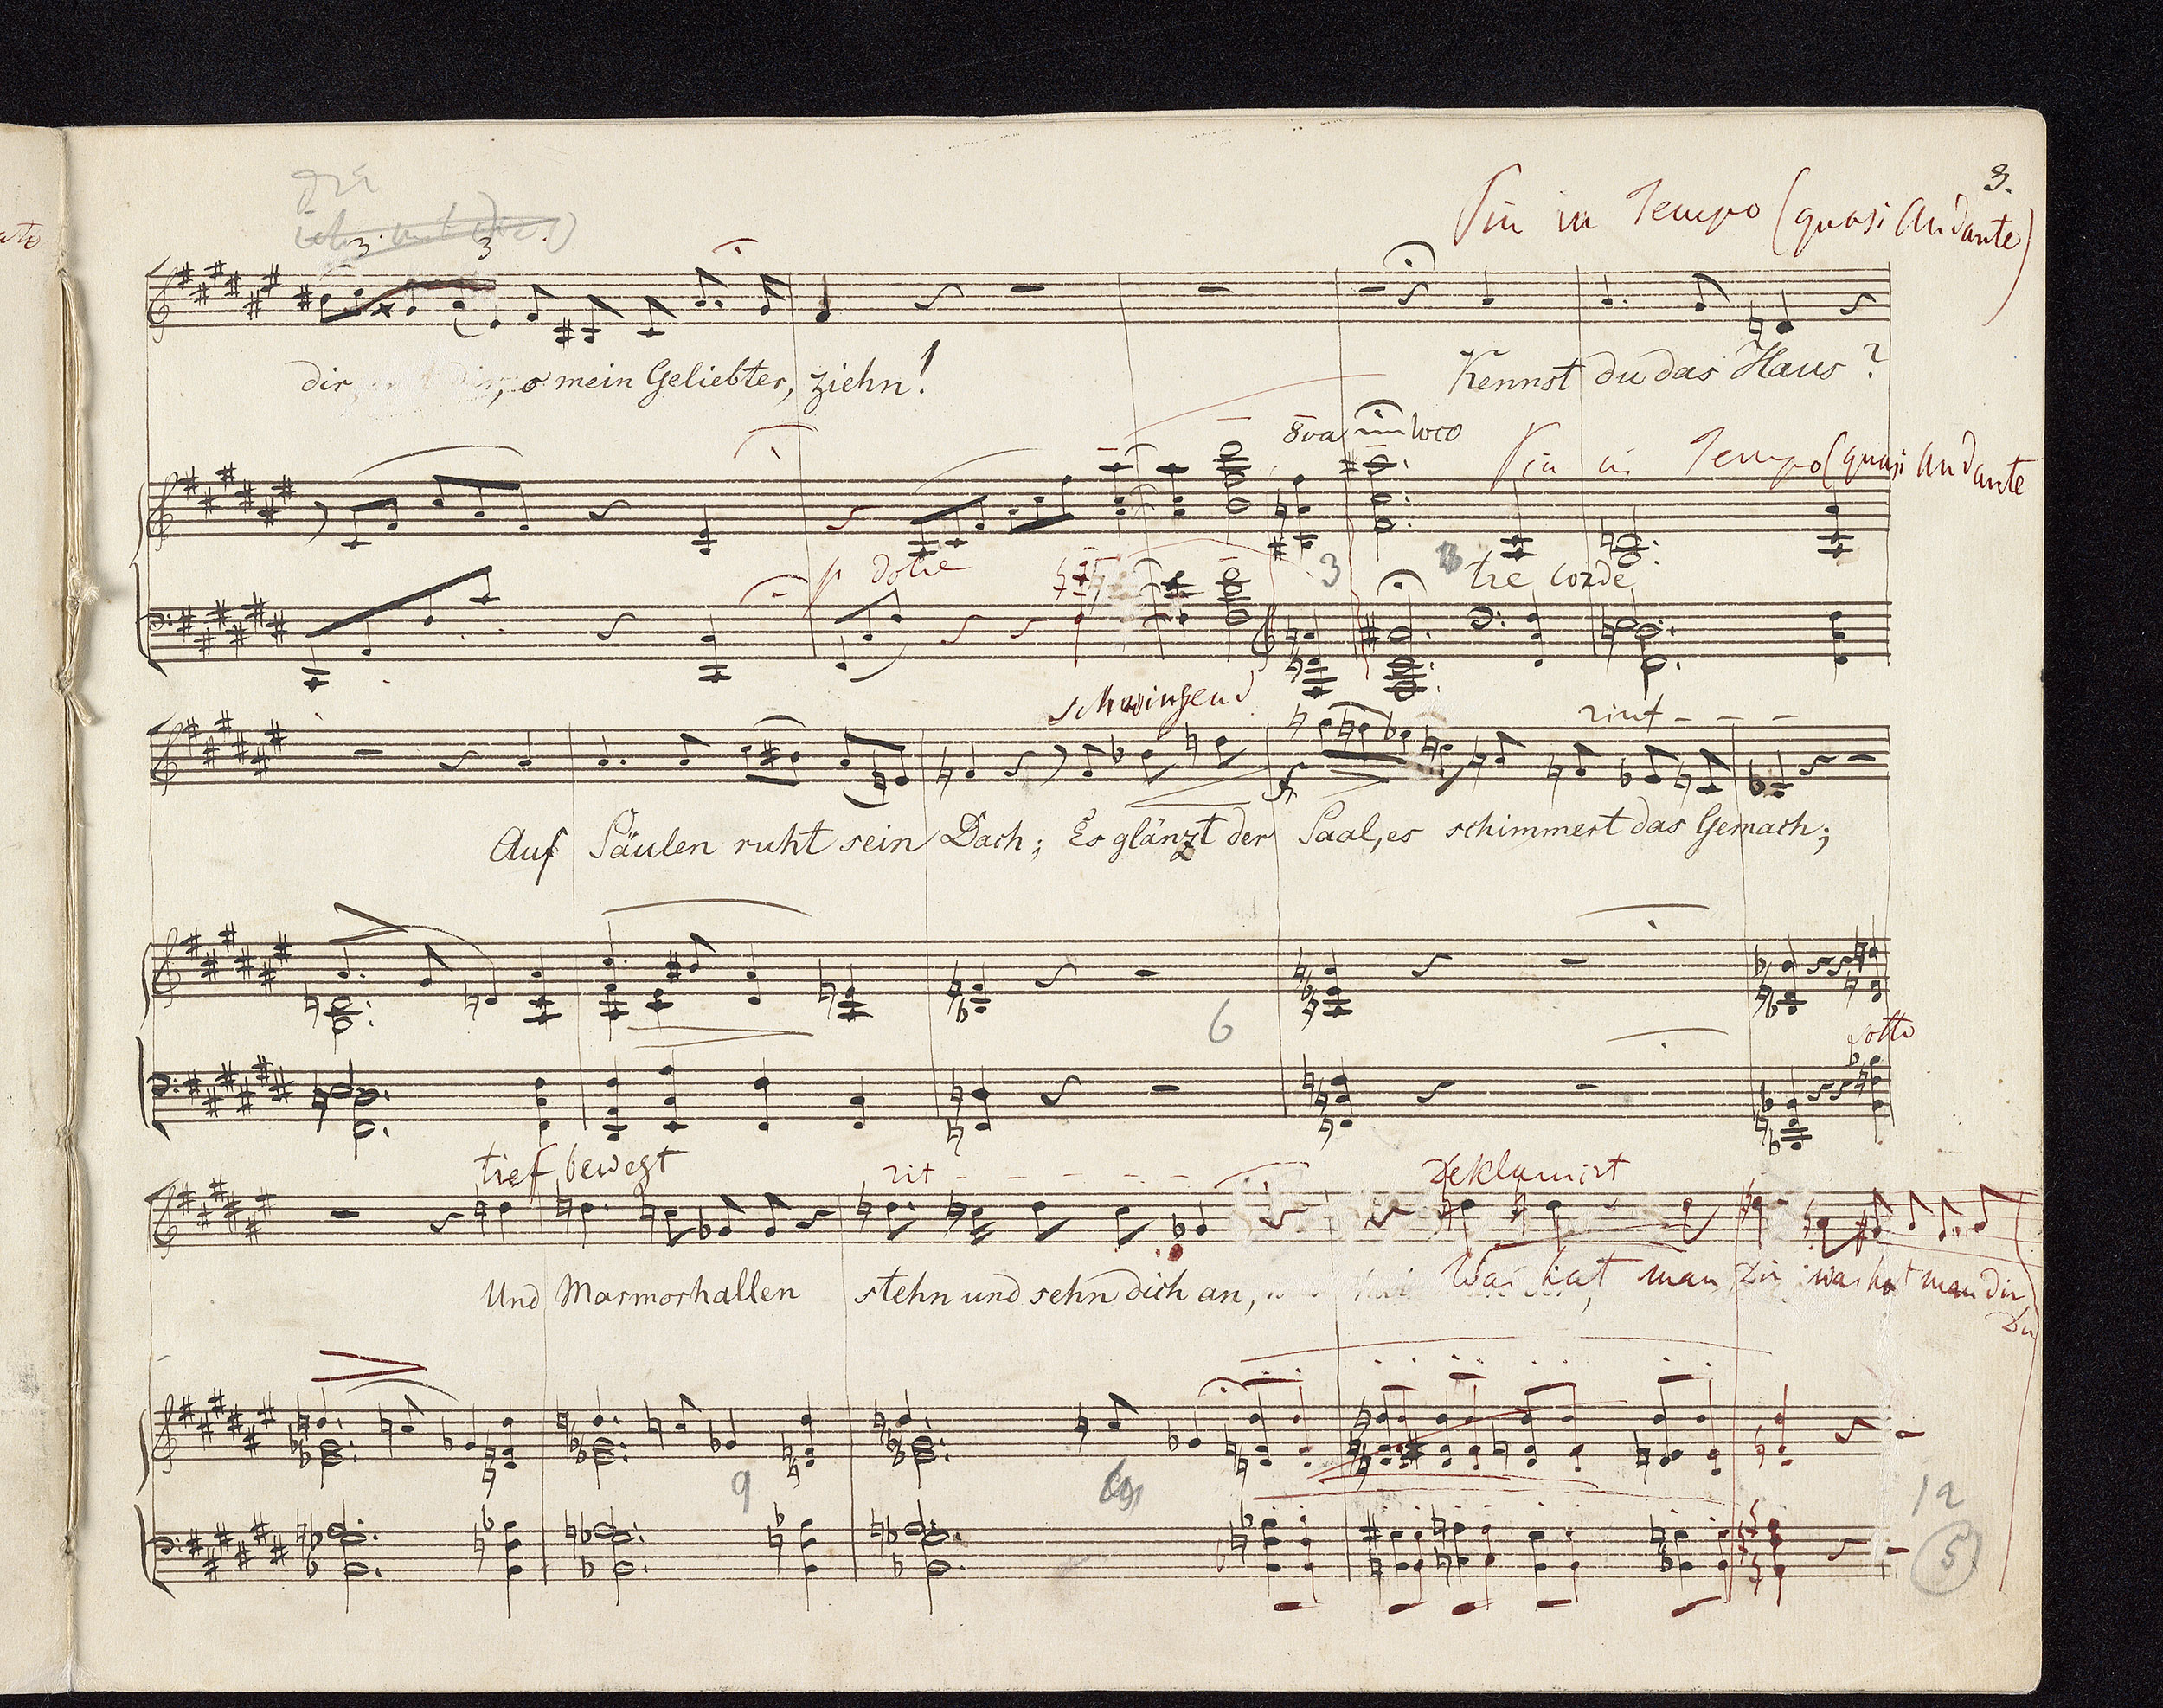 3.
Più in Tempo (quasi Andante)
3 3
dir, o mein Geliebter, ziehn! Kennst du das Haus?
8va loco
Più in Tempo (quasi Andante
p dolce
3
tre corde
schwingend
rinf - - -
Auf Säulen ruht sein Dach; Es glänzt der Saal, es schimmert das Gemach;
6
sotto
tief bewegt rit - - - - - Deklamirt
Und Marmorhallen stehn und sehn dich an, Was hat man Dir was hat man dir,
Du
9
12
5